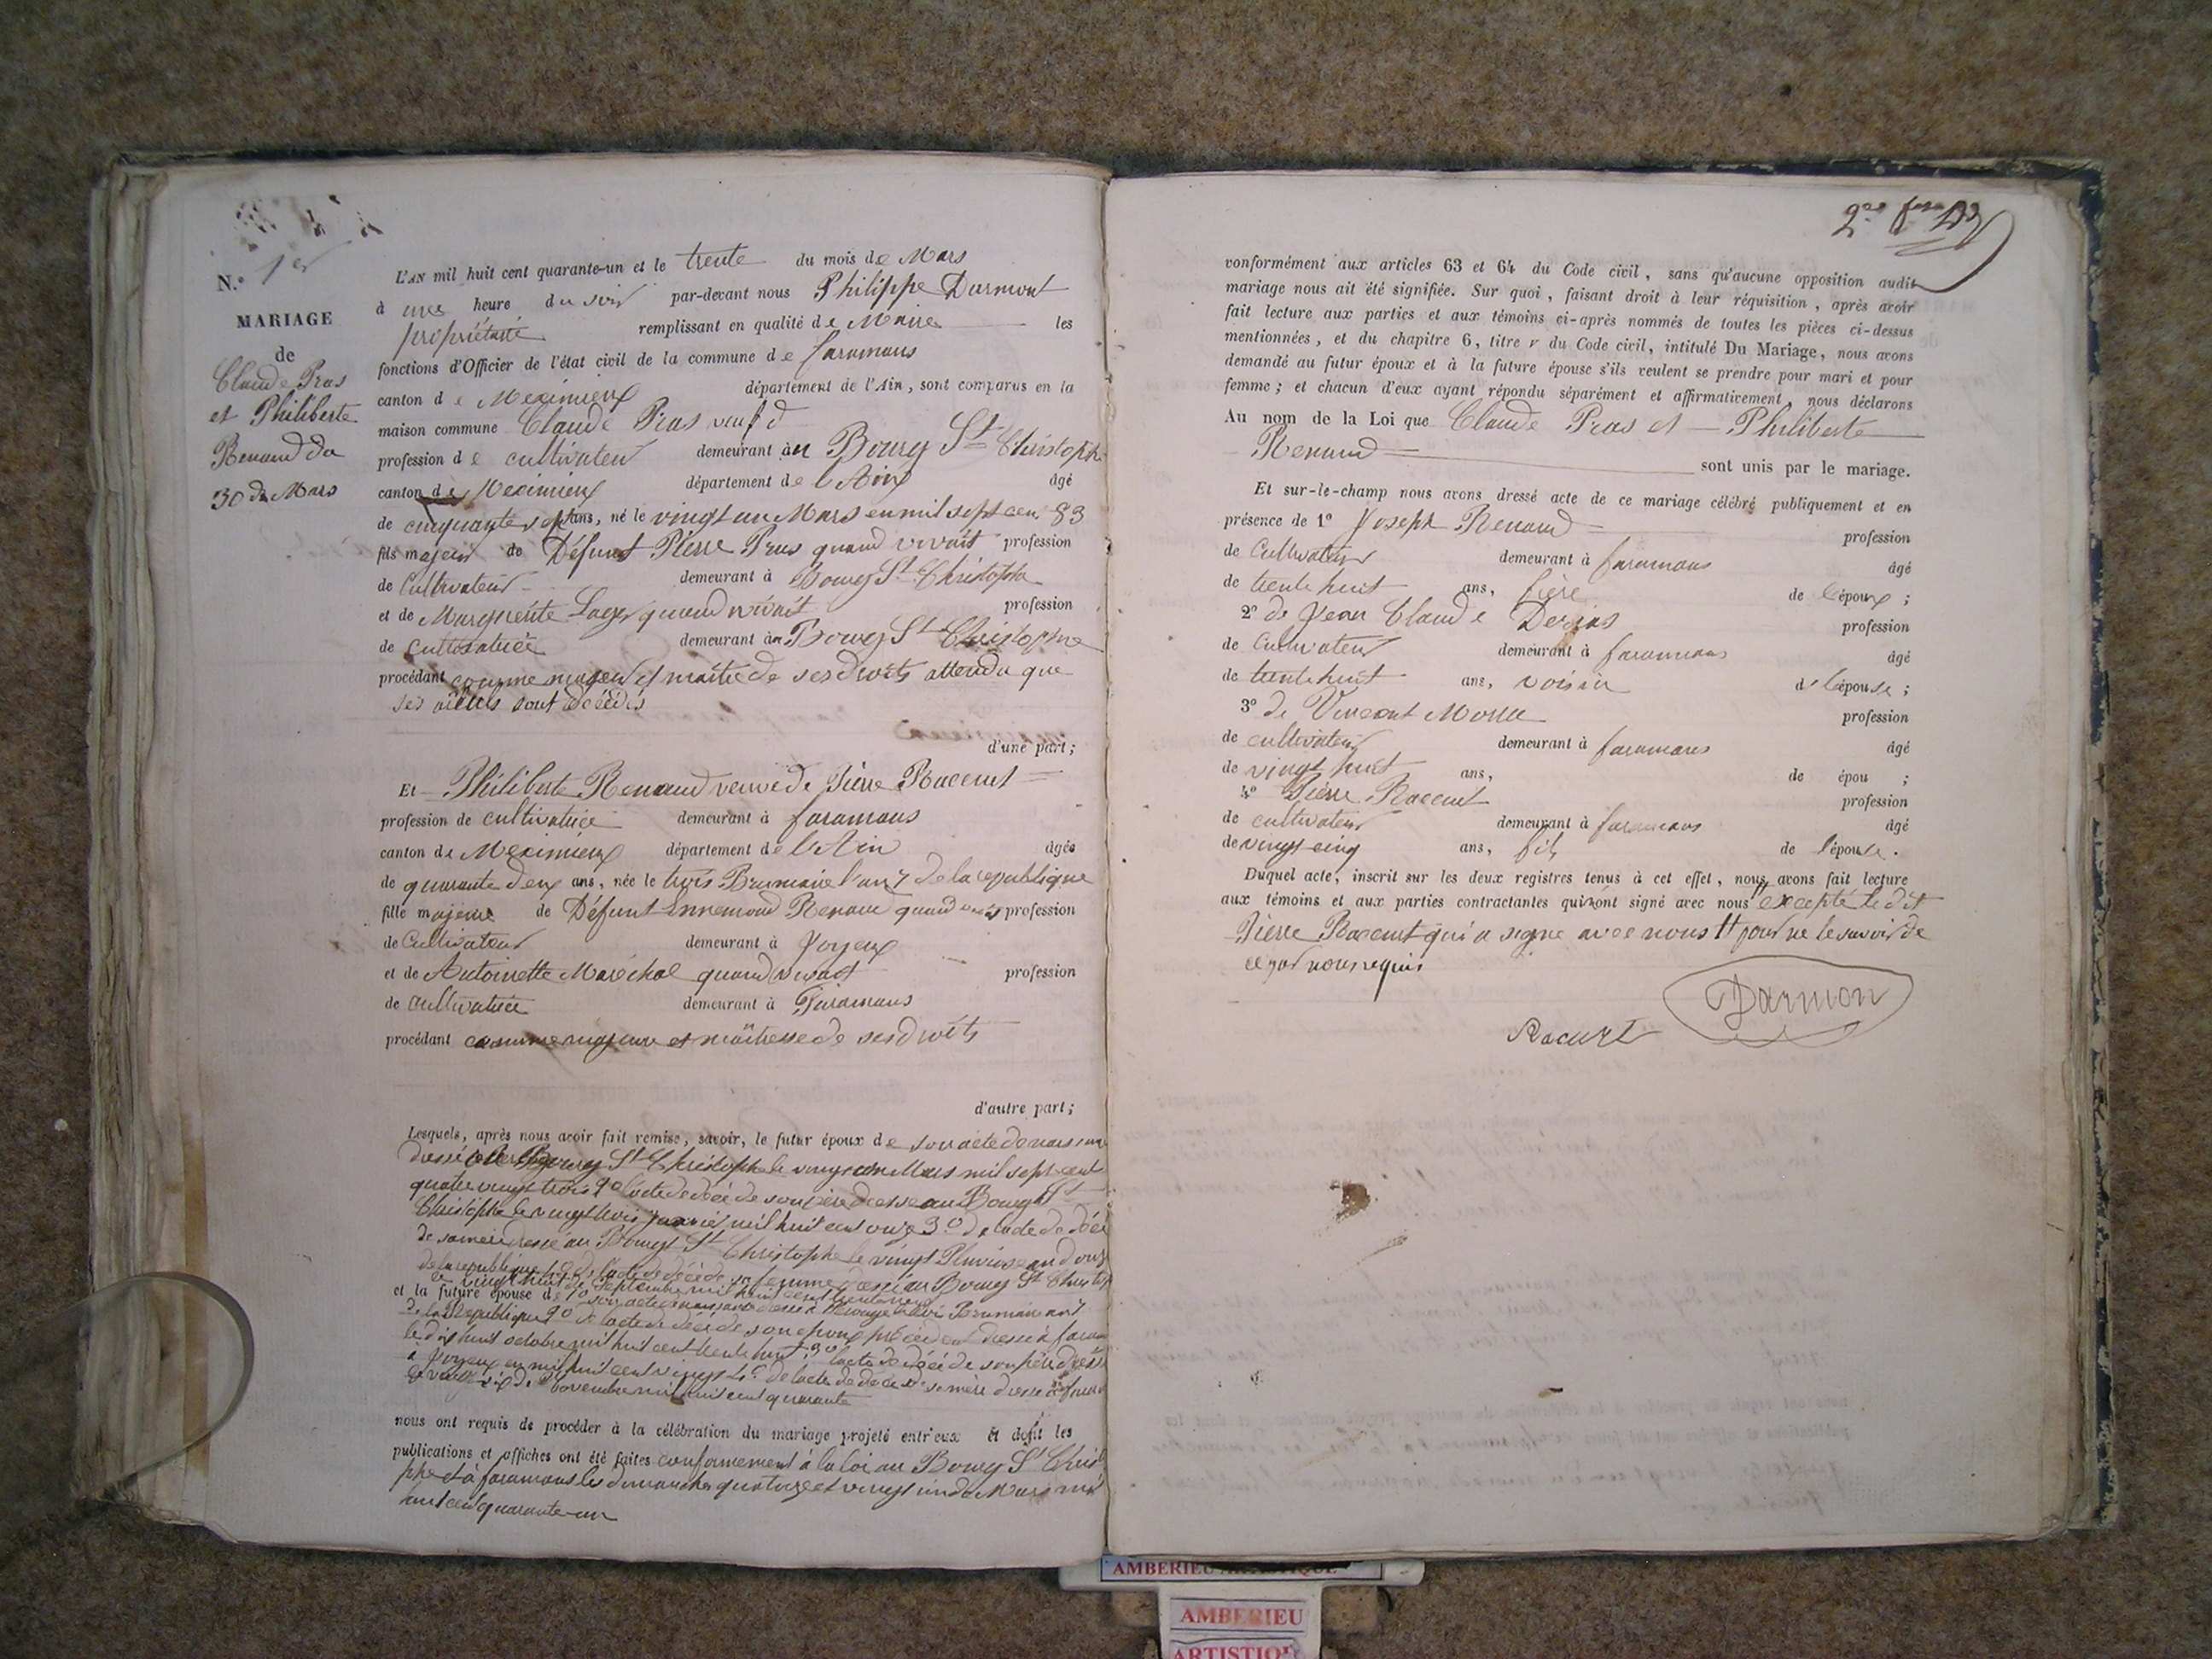 N.º 1er
MARIAGE
de
Claude Pras
et Philiberte
Renaud du
30 de Mars
L'AN mil huit cent quarante-un et le trente du mois de Mars
à une heure du soir par-devant nous Philippe Darmont
propriétaire remplissant en qualité de Maire les
fonctions d'Officier de l'état civil de la commune de faramans
canton de Meximieux département de l'Ain, sont comparus en la
maison commune Claude Pras veuf d
profession de cultivateur demeurant au Bourg St Christophe
canton de Meximieux département de l'Ain âgé
de cinquante sept ans, né le vingt un Mars en mil sept cen 83
fils majeur de Défunt Pierre Pras quand vivait profession
de Cultivateur demeurant à Bourg St Christophe
et de Marguerite Loger quand vivait profession
de cultivatrice demeurant au Bourg St Christophe
procédant comme majeur et maitre de ses droits attendu que
ses aieuls sont décédés
d'une part;
Et Philiberte Renaud veuve de Pierre Raccurt
profession de cultivatrice demeurant à faramans
canton de Meximieux département de l'Ain âgée
de quarante deux ans, née le trois Brumaire l'an 7 de la republique
fille majeure de Défunt Ennemond Renaud quand vivait profession
de Cultivateur demeurant à Joyeux
et de Antoinette Maréchal quand vivait profession
de cultivatrice demeurant à Faramans
procédant comme majeure et maîtresse de ses droits
d'autre part;
Lesquels, après nous avoir fait remise, savoir, le futur époux de son acte de naissance
dressé Bourg St Christophe le vingt un Mars mil sept cent
quatre vingt trois 2º l'acte de décé de son père dressé au Bourg St
Christophe le vingt trois janvier mil huit cent onze 3º de l'acte de décé
de sa mère dressé au Bourg St Christophe le vingt Pluviose an douze
de la republique 4º de l'acte de décé de sa femme dressé au Bourg St Christop
le vingt huit de Septembre mil huit cent
et la future épouse de 1º son acte de naissance dressé à trois Brumaire an 7
de la République 2º de l'acte de décé de son époux précédent dressé à faram
le dix huit octobre mil huit cent trente huit 3º l'acte de décé de son père dressé
à Joyeux en mil huit cent vingt 4º de l'acte de décé de sa mère dressé à faram
le vingt six de Novembre mil huit cent quarante
nous ont requis de procéder à la célébration du mariage projeté entr'eux et dont les
publications et affiches ont été faites conformement à la loi au Bourg St Christ
phe et à faramans les dimanches quatorze et vingt un de Mars mil
huit cent quarante-un
conformément aux articles 63 et 64 du Code civil, sans qu'aucune opposition audit
mariage nous ait été signifiée. Sur quoi, faisant droit à leur réquisition, après avoir
fait lecture aux parties et aux témoins ci-après nommés de toutes les pièces ci-dessus
mentionnées, et du chapitre 6, titre v du Code civil, intitulé Du Mariage, nous avons
demandé au futur époux et à la future épouse s'ils veulent se prendre pour mari et pour
femme; et chacun d'eux ayant répondu séparément et affirmativement, nous déclarons
Au nom de la Loi que Claude Pras et Philiberte
Renaud sont unis par le mariage.
Et sur-le-champ nous avons dressé acte de ce mariage célébré publiquement et en
présence de 1º Joseph Renaud profession
de Cultivateur demeurant à faramans âgé
de trente huit ans, frère de l'époux;
2º de Jean Claude profession
de Cultivateur demeurant à faramans âgé
de trente huit ans, voisin d l'épouse;
3º de Vincent Morel profession
de cultivateur demeurant à faramans âgé
de vingt huit ans, de épou ;
4º Pierre Raccurt profession
de cultivateur demeurant à faramans âgé
de vingt cinq ans, fils de l'épouse.
Duquel acte, inscrit sur les deux registres tenus à cet effet, nous avons fait lecture
aux témoins et aux parties contractantes qui n'ont signé avec nous excepté le dit
Pierre Raccurt qui a signé avec nous pour ne le savoir de
ce par nous requis
Darmon
Racurt
AMBERIEU ARTISTIQUE
AMBERIEU
ARTISTIQ